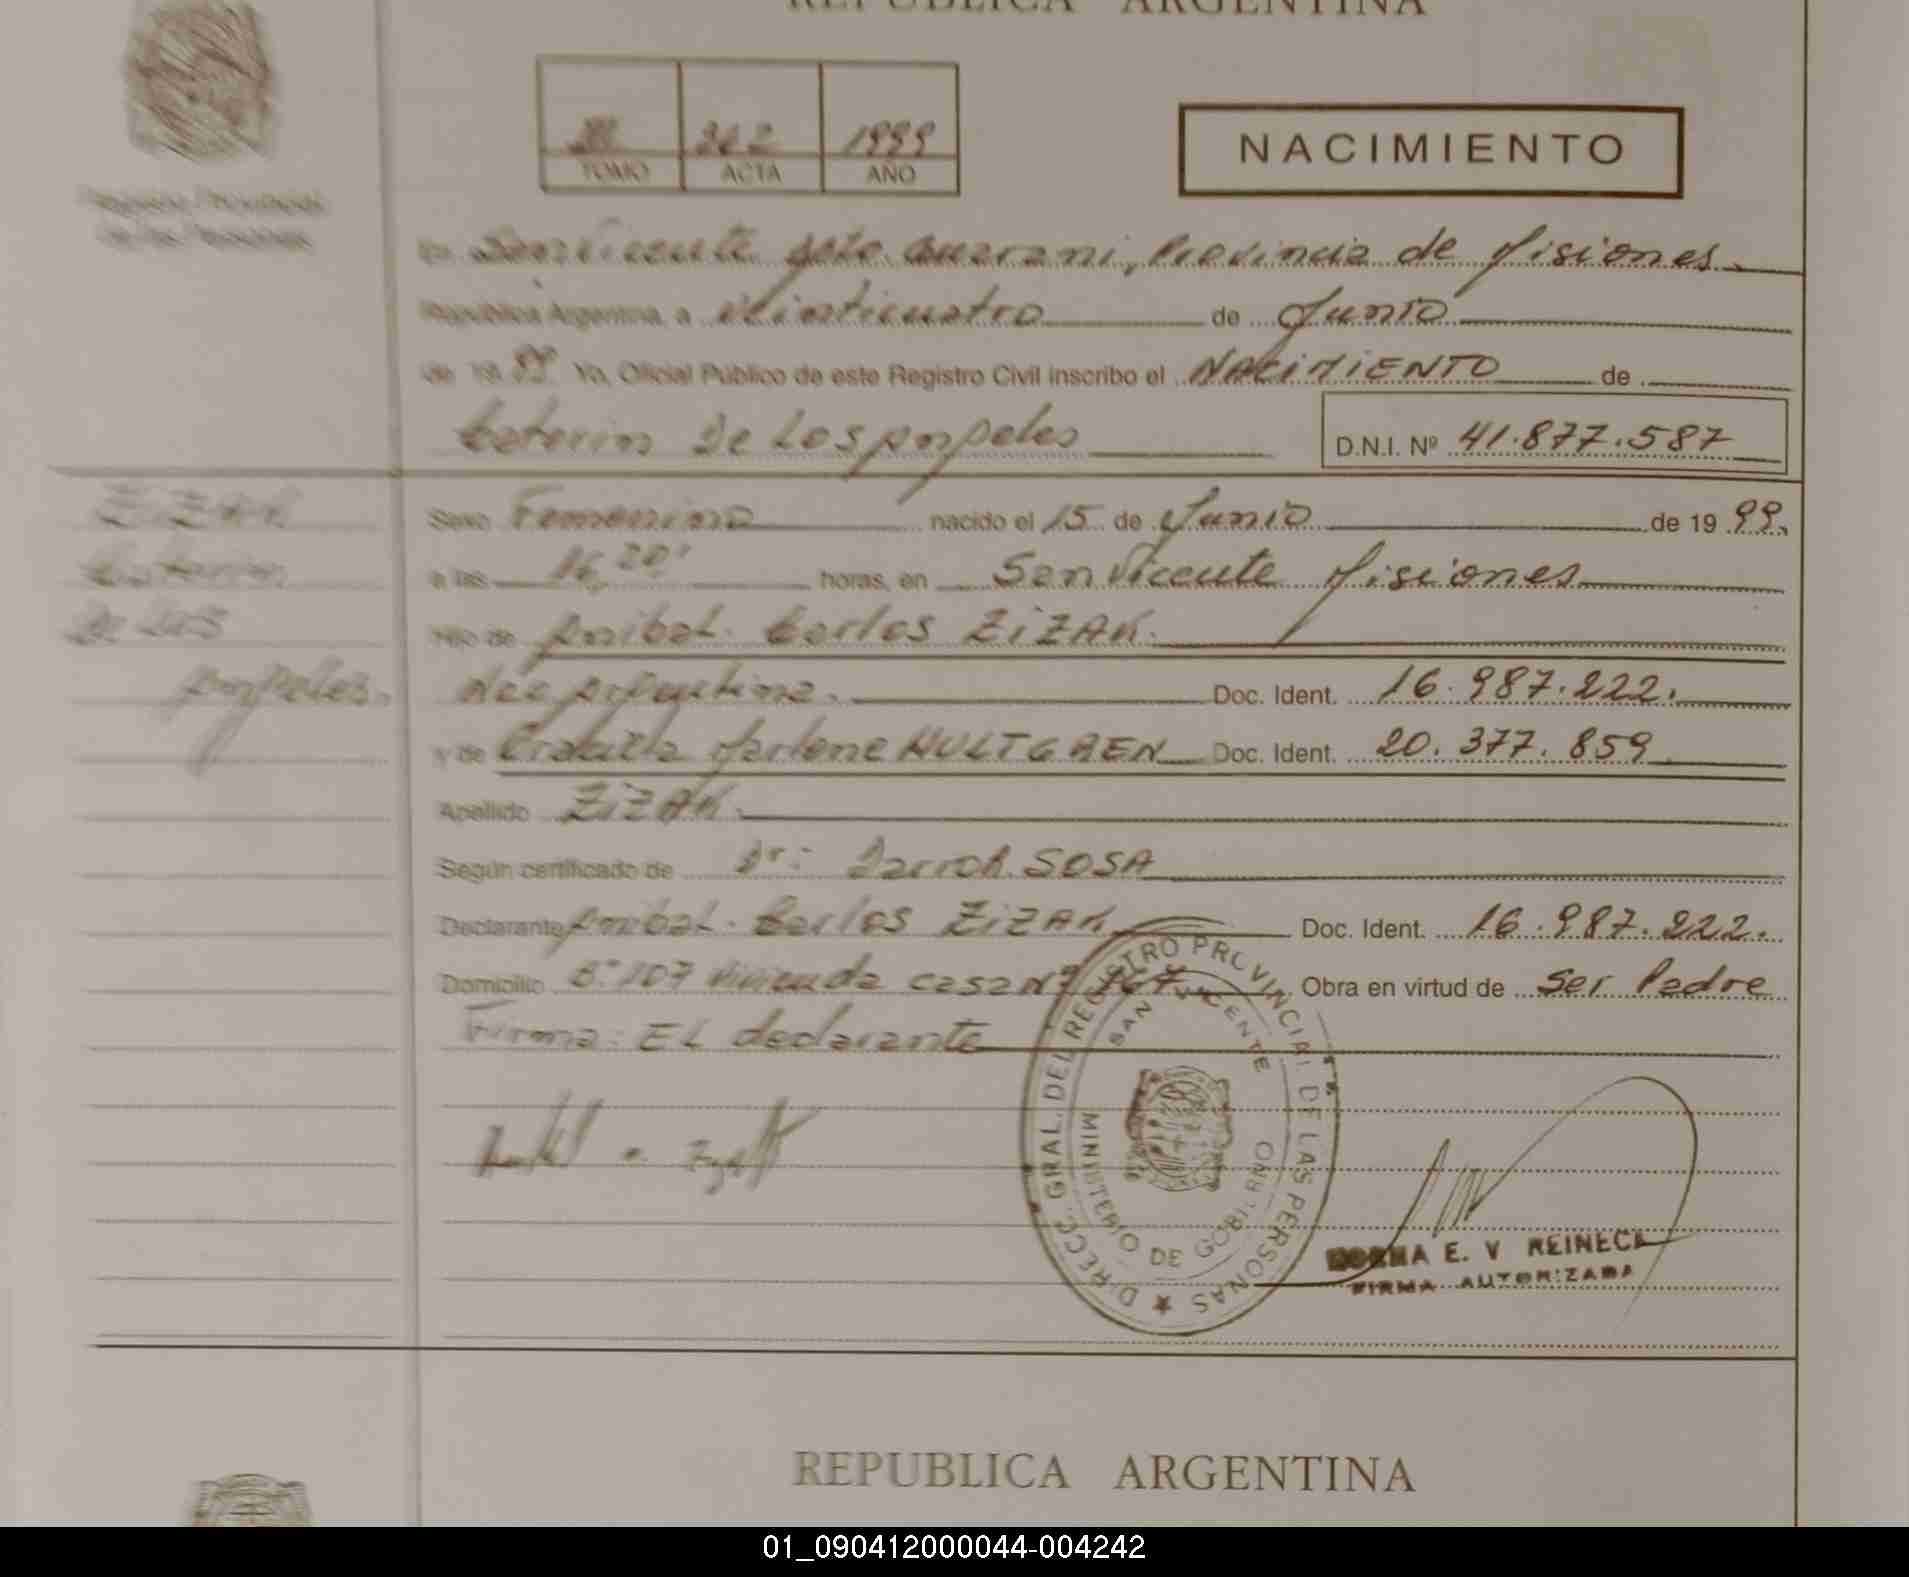 REPUBLICA ARGENTINA
III 362 1999
TOMO ACTA AÑO
NACIMIENTO
Registro Provincial
de las Personas
En San Vicente Dpto. Guarani, Provincia de Misiones
República Argentina, a Veinticuatro de Junio
de 19 99 Yo, Oficial Público de este Registro Civil inscribo el NACIMIENTO de
Caterin De Los Angeles D.N.I. Nº 41.877.587
ZIZAK
Caterin
De Los
Angeles.
Sexo Femenino nacido el 15 de Junio de 19 99,
a las 16,20' horas, en San Vicente Misiones
Hijo de Anibal Carlos ZiZAK.
Nac Argentina. Doc. Ident. 16.987.222.
y de Graciela Marlene HULTGREN Doc. Ident. 20.377.859
Apellido ZiZAK
Según certificado de Dr: SOSA
Declarante Anibal Carlos ZiZAK Doc. Ident. 16.987.222.
Domicilio Bº 107 Vivienda casa Nº 167 Obra en virtud de Ser Padre
Firma: EL declarante
DIRECC. GRAL. DEL REGISTRO PROVINCIAL DE LAS PERSONAS
SAN VICENTE
MINISTERIO DE GOBIERNO
NORMA E. V REINECK
FIRMA AUTORIZADA
REPUBLICA ARGENTINA
01_090412000044-004242